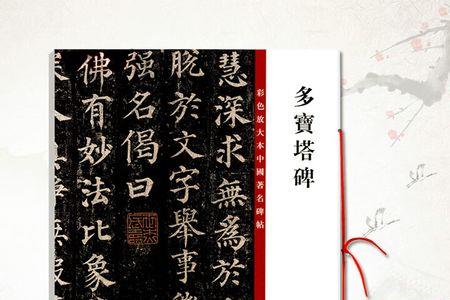 多寶塔碑
彩色放大本中國著名碑帖
慧深求無為於
脫於文字舉事
强名偈曰
佛有妙法比象